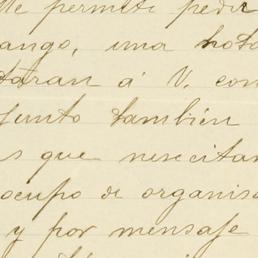 Me permito pedir
ango, una nota
taran á V. con
Junto también
s que nescitan
ocupo de organisa
y por mensaje